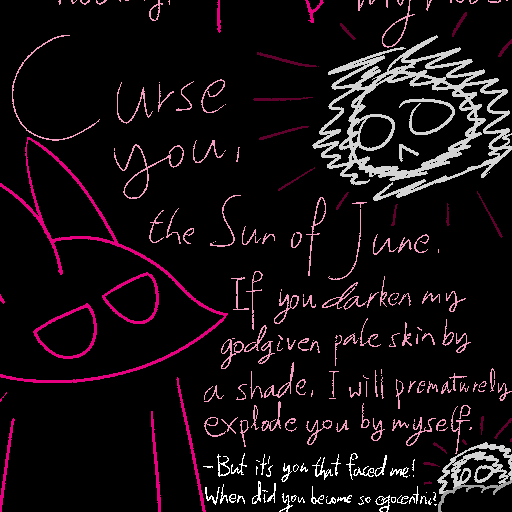 Curse
you,
the Sun of June.
If you darken my
godgiven pale skin by
a shade, I will prematurely
explode you by myself.
-But it's you that faced me!
When did you become so egocentric?